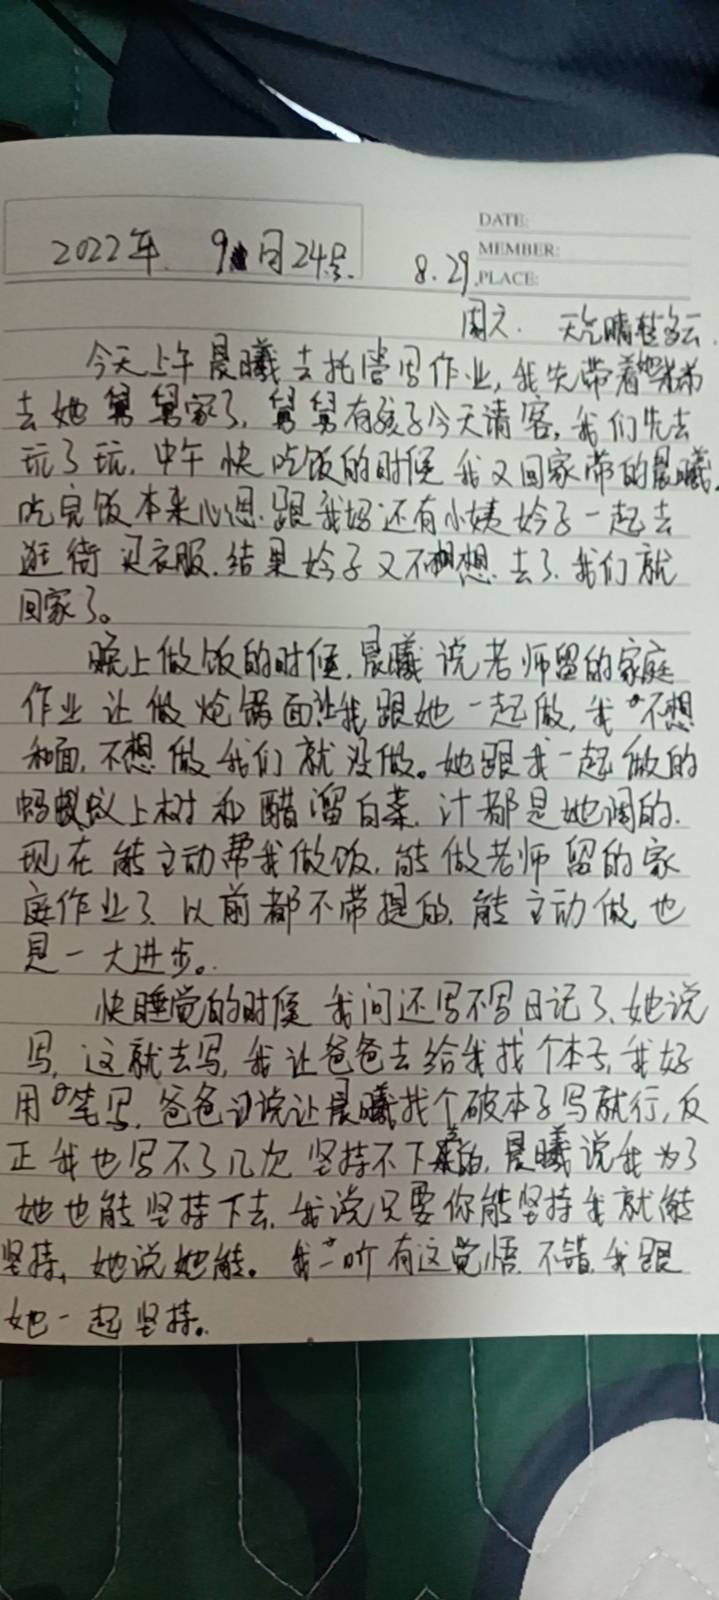 DATE:
2022年 9月24号. 8.29. MEMBER:
PLACE:
周六. 天气晴转多云.
今天上午晨曦去托管写作业,我先带着她弟弟
去她舅舅家了,舅舅有孩子今天请客,我们先去
玩了玩,中午快吃饭的时候我又回家带的晨曦,
吃完饭本来心思.跟我妈还有小姨妗子一起去
逛街买衣服.结果妗子又不想去了.我们就
回家了。
晚上做饭的时候,晨曦说老师留的家庭
作业让做炝锅面让我跟她一起做,我不想
和面,不想做我们就没做。她跟我一起做的
蚂蚁上树和醋溜白菜.汁都是她调的.
现在能主动帮我做饭,能做老师留的家
庭作业了,以前都不带提的,能主动做也
是一大进步。
快睡觉的时候我问还写不写日记了,她说
写,这就去写,我让爸爸去给我找个本子,我好
用笔写,爸爸说让晨曦找个破本子写就行,反
正我也写不了几次坚持不下来的,晨曦说我为了
她也能坚持下去,我说只要你能坚持我就能
坚持,她说她能。我一听有这觉悟.不错,我跟
她一起坚持。